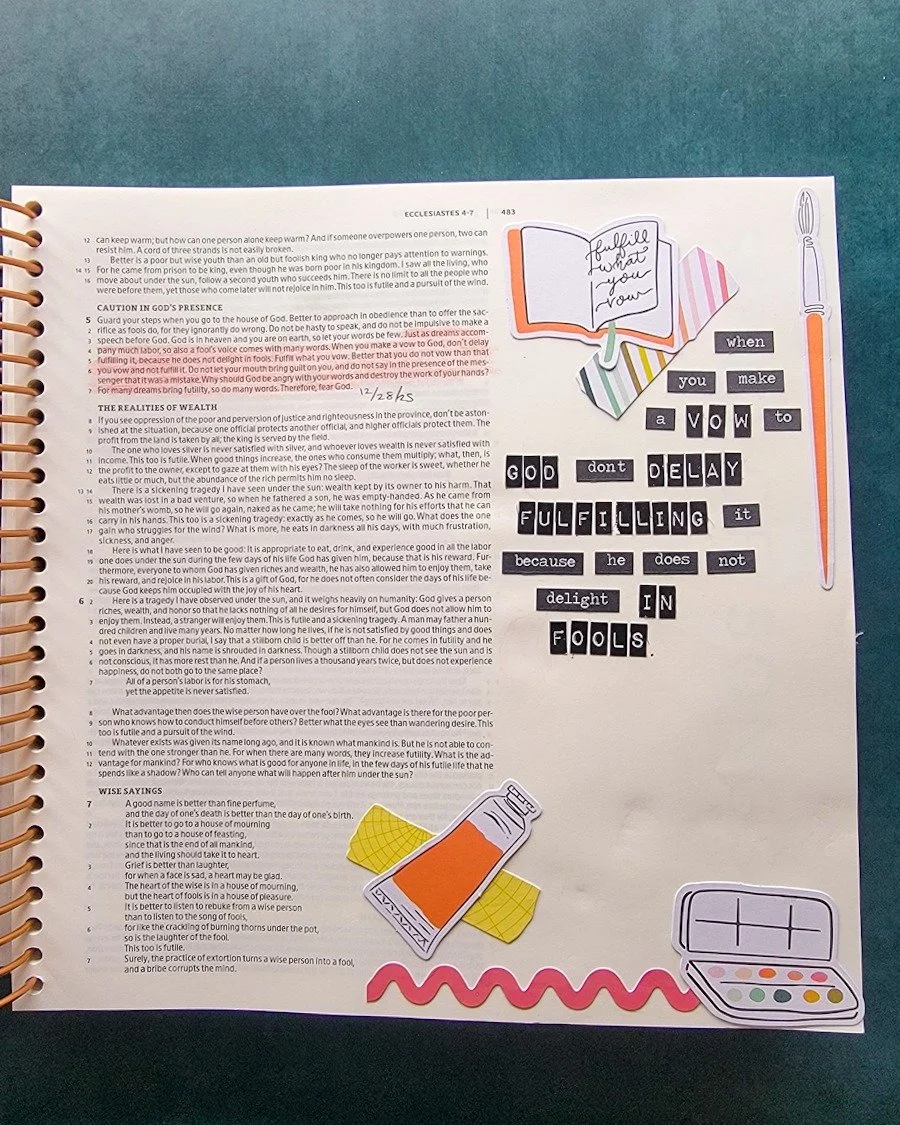 ECCLESIASTES 4–7 | 483
12 can keep warm; but how can one person alone keep warm? And if someone overpowers one person, two can
resist him. A cord of three strands is not easily broken.
13 Better is a poor but wise youth than an old but foolish king who no longer pays attention to warnings.
14 15 For he came from prison to be king, even though he was born poor in his kingdom. I saw all the living, who
16 move about under the sun, follow a second youth who succeeds him. There is no limit to all the people who
were before them, yet those who come later will not rejoice in him. This too is futile and a pursuit of the wind.
CAUTION IN GOD'S PRESENCE
5 Guard your steps when you go to the house of God. Better to approach in obedience than to offer the sac-
2 rifice as fools do, for they ignorantly do wrong. Do not be hasty to speak, and do not be impulsive to make a
3 speech before God. God is in heaven and you are on earth, so let your words be few. Just as dreams accom-
4 pany much labor, so also a fool's voice comes with many words. When you make a vow to God, don't delay
5 fulfilling it, because he does not delight in fools. Fulfill what you vow. Better that you do not vow than that
6 you vow and not fulfill it. Do not let your mouth bring guilt on you, and do not say in the presence of the mes-
senger that it was a mistake. Why should God be angry with your words and destroy the work of your hands?
7 For many dreams bring futility, so do many words. Therefore, fear God.
12/28/25
THE REALITIES OF WEALTH
8 If you see oppression of the poor and perversion of justice and righteousness in the province, don't be aston-
9 ished at the situation, because one official protects another official, and higher officials protect them. The
profit from the land is taken by all; the king is served by the field.
10 The one who loves silver is never satisfied with silver, and whoever loves wealth is never satisfied with
11 income. This too is futile. When good things increase, the ones who consume them multiply; what, then, is
12 the profit to the owner, except to gaze at them with his eyes? The sleep of the worker is sweet, whether he
eats little or much, but the abundance of the rich permits him no sleep.
13 14 There is a sickening tragedy I have seen under the sun: wealth kept by its owner to his harm. That
15 wealth was lost in a bad venture, so when he fathered a son, he was empty-handed. As he came from
his mother's womb, so he will go again, naked as he came; he will take nothing for his efforts that he can
16 carry in his hands. This too is a sickening tragedy: exactly as he comes, so he will go. What does the one
17 gain who struggles for the wind? What is more, he eats in darkness all his days, with much frustration,
sickness, and anger.
18 Here is what I have seen to be good: It is appropriate to eat, drink, and experience good in all the labor
19 one does under the sun during the few days of his life God has given him, because that is his reward. Fur-
thermore, everyone to whom God has given riches and wealth, he has also allowed him to enjoy them, take
20 his reward, and rejoice in his labor. This is a gift of God, for he does not often consider the days of his life be-
cause God keeps him occupied with the joy of his heart.
6 2 Here is a tragedy I have observed under the sun, and it weighs heavily on humanity: God gives a person
riches, wealth, and honor so that he lacks nothing of all he desires for himself, but God does not allow him to
3 enjoy them. Instead, a stranger will enjoy them. This is futile and a sickening tragedy. A man may father a hun-
dred children and live many years. No matter how long he lives, if he is not satisfied by good things and does
4 not even have a proper burial, I say that a stillborn child is better off than he. For he comes in futility and he
5 goes in darkness, and his name is shrouded in darkness. Though a stillborn child does not see the sun and is
6 not conscious, it has more rest than he. And if a person lives a thousand years twice, but does not experience
happiness, do not both go to the same place?
7 All of a person's labor is for his stomach,
yet the appetite is never satisfied.
8 What advantage then does the wise person have over the fool? What advantage is there for the poor per-
9 son who knows how to conduct himself before others? Better what the eyes see than wandering desire. This
too is futile and a pursuit of the wind.
10 Whatever exists was given its name long ago, and it is known what mankind is. But he is not able to con-
11 tend with the one stronger than he. For when there are many words, they increase futility. What is the ad-
12 vantage for mankind? For who knows what is good for anyone in life, in the few days of his futile life that he
spends like a shadow? Who can tell anyone what will happen after him under the sun?
WISE SAYINGS
7 A good name is better than fine perfume,
and the day of one's death is better than the day of one's birth.
2 It is better to go to a house of mourning
than to go to a house of feasting,
since that is the end of all mankind,
and the living should take it to heart.
3 Grief is better than laughter,
for when a face is sad, a heart may be glad.
4 The heart of the wise is in a house of mourning,
but the heart of fools is in a house of pleasure.
5 It is better to listen to rebuke from a wise person
than to listen to the song of fools,
6 for like the crackling of burning thorns under the pot,
so is the laughter of the fool.
This too is futile.
7 Surely, the practice of extortion turns a wise person into a fool,
and a bribe corrupts the mind.
fulfill
what
you
vow
when
you make
a VOW to
GOD dont DELAY
FULFILLING it
because he does not
delight IN
FOOLS.